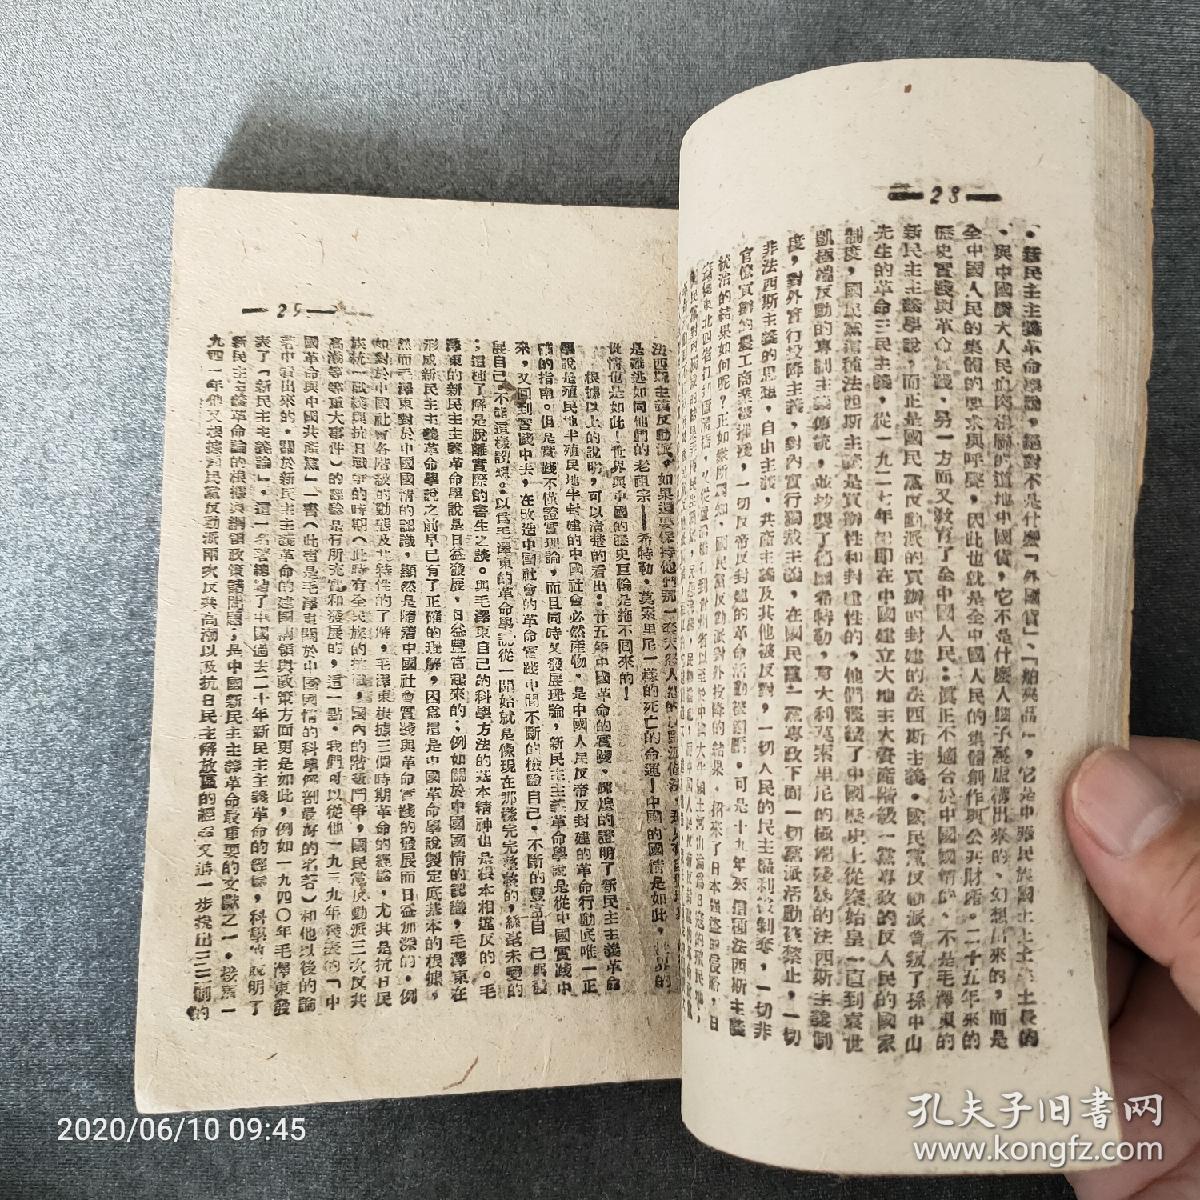 28
．新民主主義革命學說，絕對不是什麼「外國貨」、「舶來品」，它是中華民族國土上土生土長的
．與中國廣大人民血肉相關的道地中國貨，它不是什麼人腦子憑虛構出來的、幻想出來的，而是
全中國人民的集體的要求與呼聲，因此也就是全中國人民的集體創作與公共財產。二十五年來的
歷史實踐與革命實踐，另一方面又教育了全中國人民：真正不適合於中國國情的，不是毛澤東的
新民主主義學說，而正是國民黨反動派的買辦的封建的法西斯主義。國民黨反動派背叛了孫中山
先生的革命三民主義，從一九二七年起即在中國建立大地主大資產階級一黨專政的反人民的國家
制度，國民黨這種法西斯主義是買辦性和封建性的，他們繼承了中國歷史上從秦始皇一直到袁世
凱極端反動的專制主義傳統，並抄襲了德國希特勒，意大利莫索里尼的極端殘暴的法西斯主義制
度，對外實行投降主義，對內實行獨裁主義，在國民黨一黨專政下面一切黨派活動被禁止，一切
非法西斯主義的思想，自由主義，共產主義及其他被反對，一切人民的民主權利被剝奪，一切非
官僚買辦的農工商業被摧殘，一切反帝反封建的革命活動被鎮壓，可是十九年來這種法西斯主義
統治的結果如何呢？正如眾所周知，國民黨反動派對外投降的結果，招來了日本強盜的侵略，日
29
法西斯主義反動派，如果還要保持他們那一套
是難逃如同他們的老祖宗——希特勒、莫索里尼一樣的死亡的命運！中國的國情是如此，世界的
從情也是如此！世界與中國的歷史巨輪是拖不回來的！
根據以上的說明，可以清楚的看出：廿五年中國革命的實踐，深遠的證明了新民主主義革命
學說是殖民地半殖民地半封建的中國社會必然產物，是中國人民反帝反封建的革命行動底唯一正
確的指南。但是實踐不僅證實理論，而且同時又發展理論，新民主主義革命學說是從中國實踐中
來，又回到實踐中去，在改造中國社會的革命實踐中間不斷的檢驗自己，不斷的豐富自己與發
展自己，不能這樣設想：以爲毛澤東的革命學說從一開始就是像現在那樣完完整整的，絲毫未變的
；這種了解是脫離實際的書生之談。與毛澤東自己的科學方法的基本精神也是根本相違反的。毛
澤東的新民主主義革命學說是日益發展，日益豐富起來的；例如關於中國國情的認識，毛澤東在
形成新民主主義革命學說之前早已有了正確的理解，因爲這是中國革命學說製定底基本的根據，
然而毛澤東對於中國國情的認識，顯然是隨着中國社會實踐與革命實踐的發展而日益加深的，例
如對於中國社會各階級的動態及其特性的了解，毛澤東根據三個時期革命的經驗，尤其是抗日民
族統一戰線與抗日戰爭的時期（此時有全民族的抗戰，國內的階級鬥爭，國民黨反動派三次反共
高潮等等重大事件）的經驗是有所充實和發展的，這一點，我們可以從他一九三九年發表的「中
國革命與中國共產黨」一書（此書是毛澤東關於中國國情的科學解剖最好的名著）和他以後的論
著中看出來的。關於新民主主義革命的建國綱領與政策方面更是如此，例如一九四〇年毛澤東發
表了「新民主主義論」，這一名著總結了中國過去二十年新民主主義革命的經驗，科學的說明了
新民主主義革命論的根據與綱領政策諸問題；是中國新民主主義革命最重要的文獻之一。接着一
九四一年他又根據國民黨反動派兩次反共高潮以及抗日民主解放區的經驗又進一步提出三三制的
2020/06/10 09:45
孔夫子旧书网
www.kongfz.com